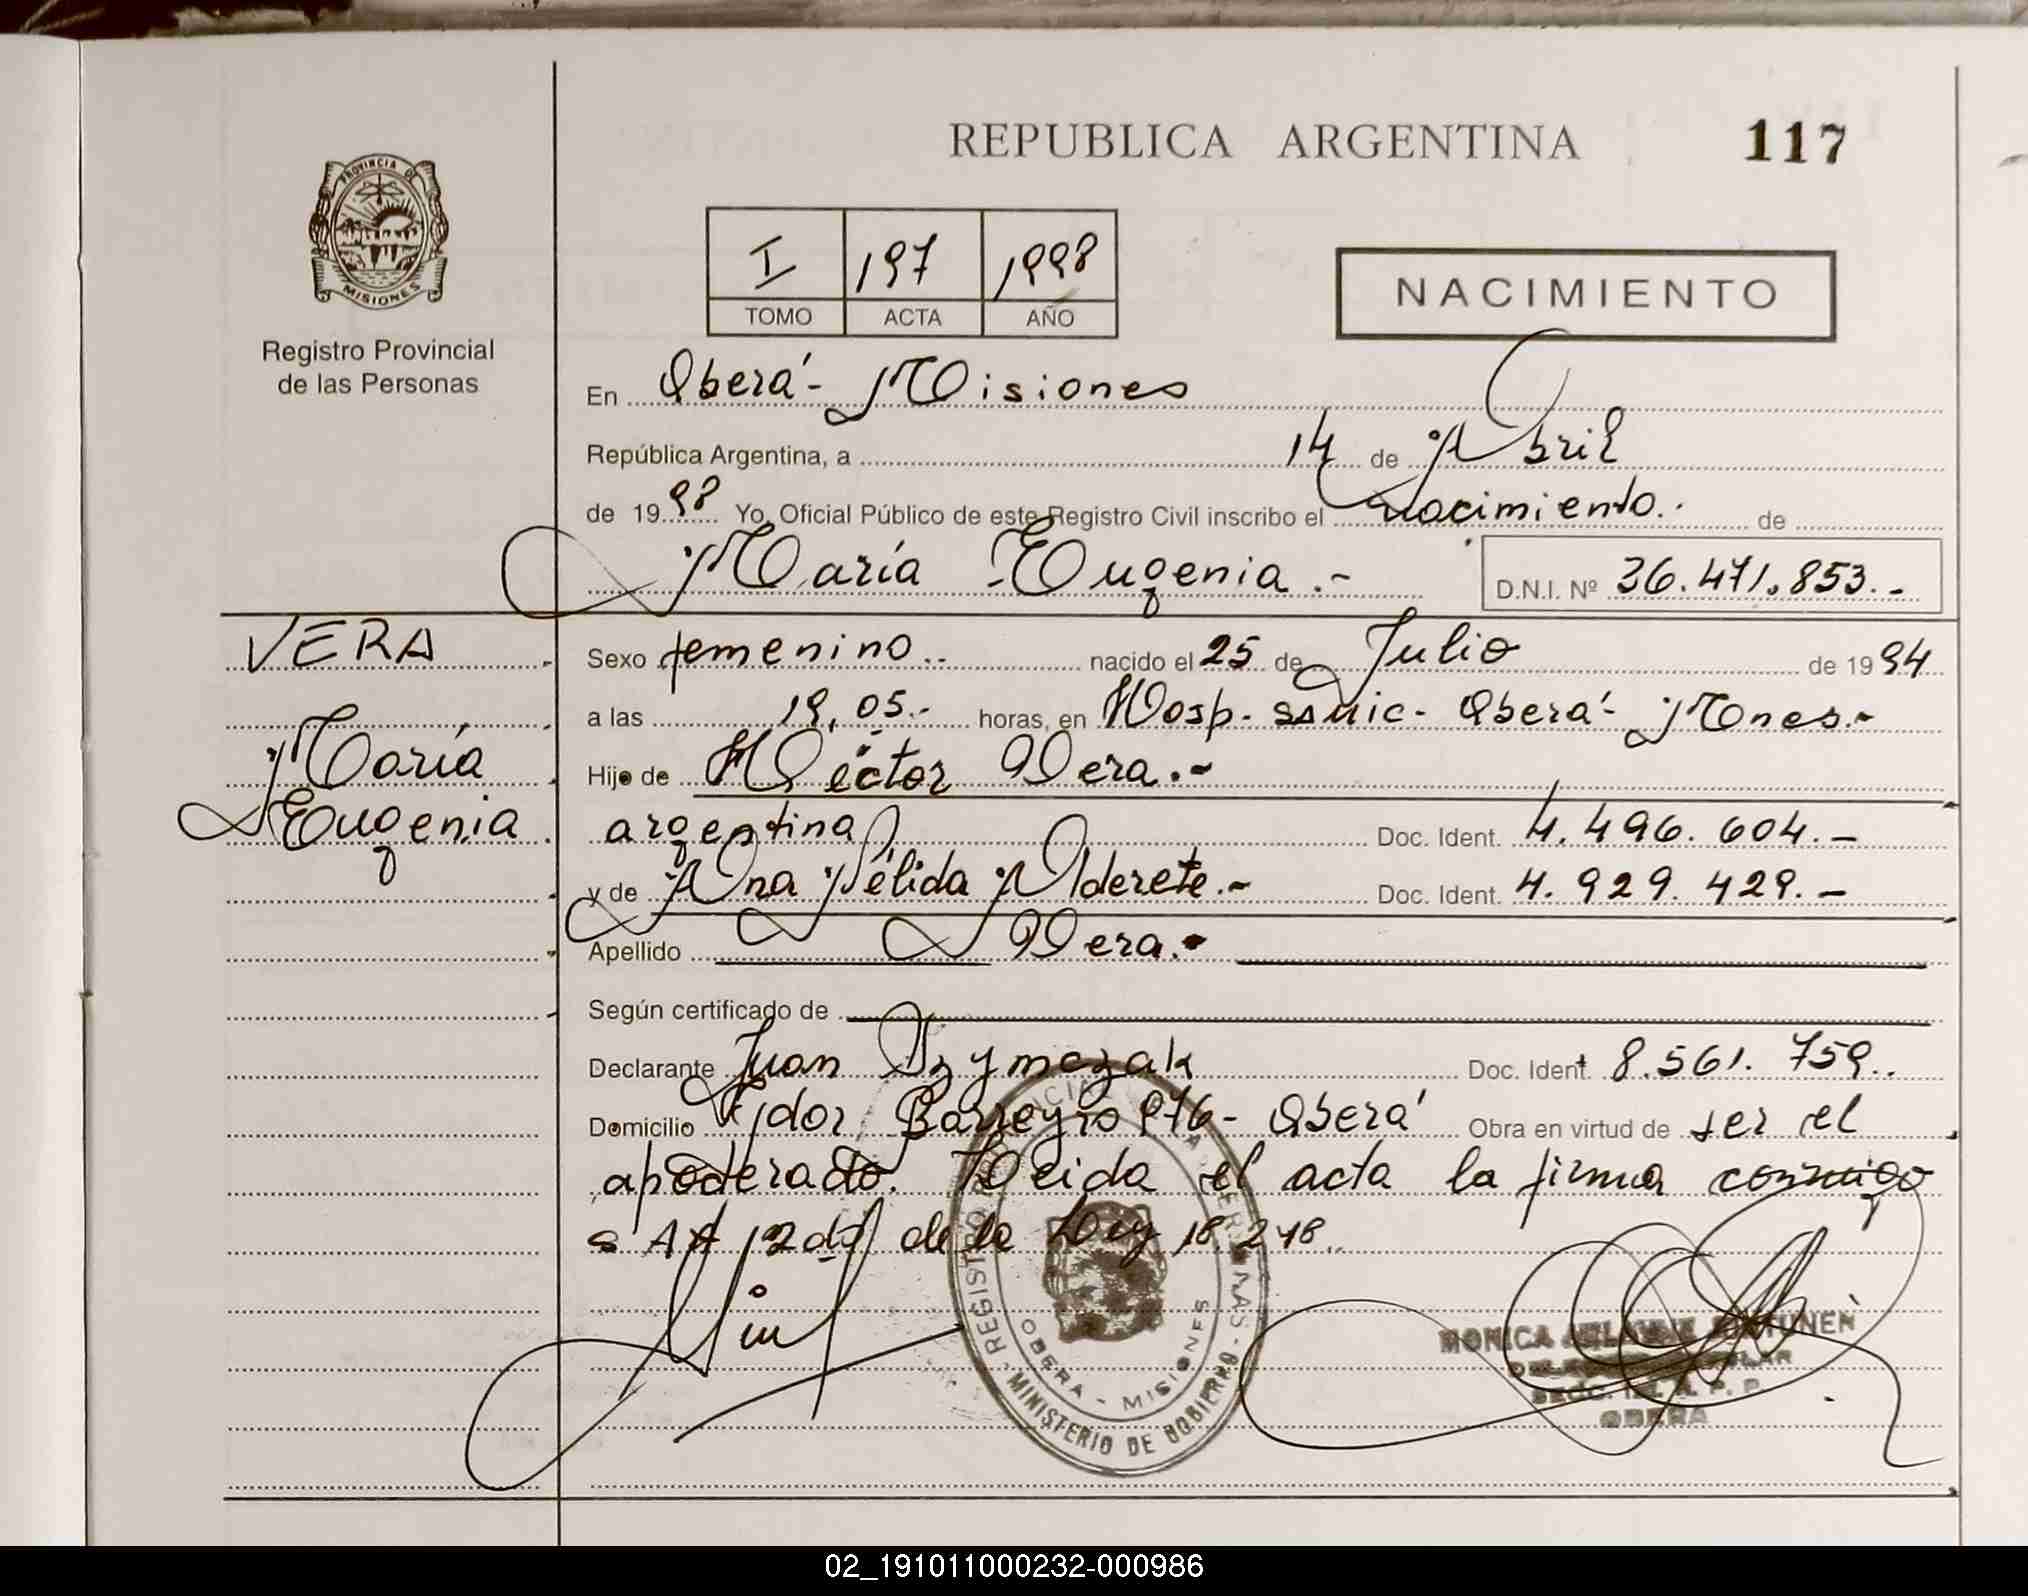 REPUBLICA ARGENTINA
117
PROVINCIA DE
MISIONES
Registro Provincial
de las Personas
I 197 1998
TOMO ACTA AÑO
NACIMIENTO
En Oberá - Misiones
República Argentina, a 14 de Abril
de 1998 Yo, Oficial Público de este Registro Civil inscribo el nacimiento.. de
María Eugenia .- D.N.I. Nº 36.471.853.-
VERA
María
Eugenia
Sexo femenino.. nacido el 25 de Julio de 1994
a las 19,05.- horas, en Hosp. Oberá - Mones.-
Hijo de Héctor Vera.-
argentina Doc. Ident. 4.496.604.-
y de Ana Nélida Alderete.- Doc. Ident. 4.929.429.-
Apellido Vera.-
Según certificado de
Declarante Juan Szymczak Doc. Ident. 8.561.759..
Domicilio Fidor Barreyro 976 - Oberá Obra en virtud de ser el
apoderado. Leida el acta la firma conmigo
de la Ley 18.248..
REGISTRO PROVINCIAL DE LAS PERSONAS - MINISTERIO DE GOBIERNO
OBERA - MISIONES
MONICA
OBERA
02_191011000232-000986